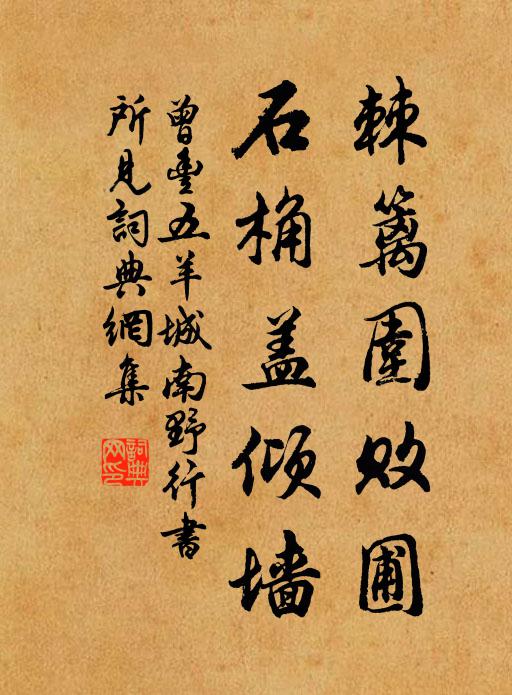 棘篱圍败圃
石桶盖倾墙
曾豐五羊城南野行書
所見詞典網集
詞典网印